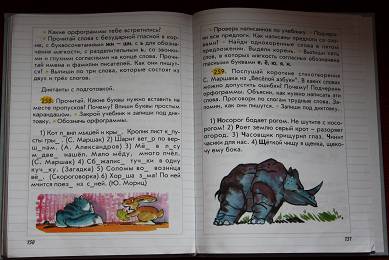 Какие орфограммы тебе встретились?
Прочитай слова с безударной гласной в кор-
не, с буквосочетаниями жи — ши, с ь для обозна-
чения мягкости, с разделительным ь, со звонки-
ми и глухими согласными на конце слова. Прочи-
тай имена и фамилии писателей. Как они пишут-
ся? Выпиши по три слова, которые состоят из
двух и трёх слогов.
Диктанты с подготовкой.
258. Прочитай. Какие буквы нужно вставить на
месте пропусков? Почему? Впиши буквы простым
карандашом. Закрой учебник и запиши под дик-
товку. Обозначь орфограммы.
1) Кот л_вил мышей и крыс_. Кролик лист к_пус-
ты гры_. (С. Маршак) 2) Шарит вет_р по верш_нам.
(А. Александров) 3) Мё_ в л_су
м_две_ нашёл. Мало мёду, много пчёл.
(С. Маршак) 4) Сб_жались туч_ки в одну
куч_ку. (Загадка) 5) Соломы во_ возница
вё_. (Скороговорка) 6) Хор_ша з_ма! По ней
мчится поез_ из с_ней. (Ю. Мориц)
150
Проверь написанное по учебнику. Подчерк-
ни все предлоги. Как написаны предлоги со сло-
вами? Найди однокоренные слова в пятом
предложении. Выдели корень. Выпиши пять
слов, в которых мягкость согласных обозначена
гласными буквами е, ё, ю, я.
259. Послушай короткие стихотворения
С. Маршака из «Весёлой азбуки». В каких словах
можно допустить ошибки? Почему? Подчеркни
орфограммы. Объясни, как нужно написать эти
слова. Проговори по слогам трудные слова. За-
помни, как они пишутся. Запиши под диктовку.
1) Носорог бодает рогом. Не шутите с носо-
рогом! 2) Роет землю серый крот — разоряет
огород. 3) Часовщик прищурил глаз. Чинит
часики для нас. 4) Щёткой чищу я щенка, щеко-
чу ему бока.
151